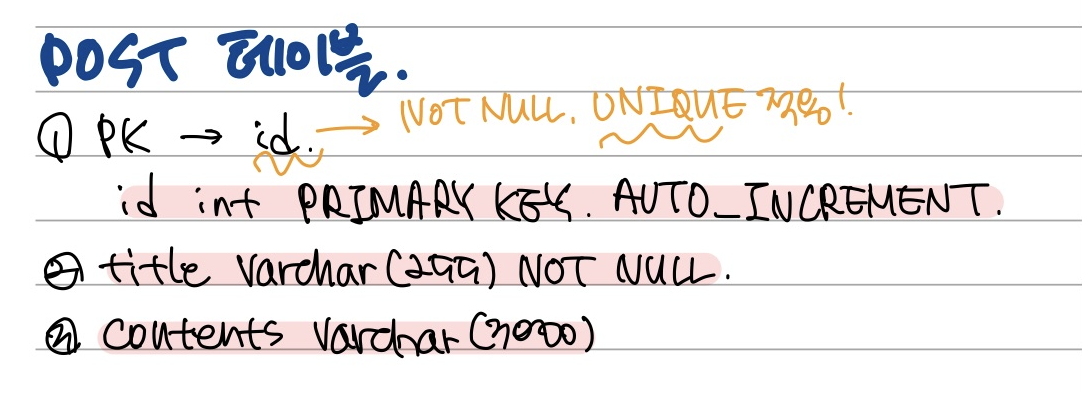 POST 테이블.
NOT NULL. UNIQUE 적용!
① PK → id.
id int PRIMARY KEY. AUTO_INCREMENT.
② title varchar(255) NOT NULL.
③ contents varchar(3000)